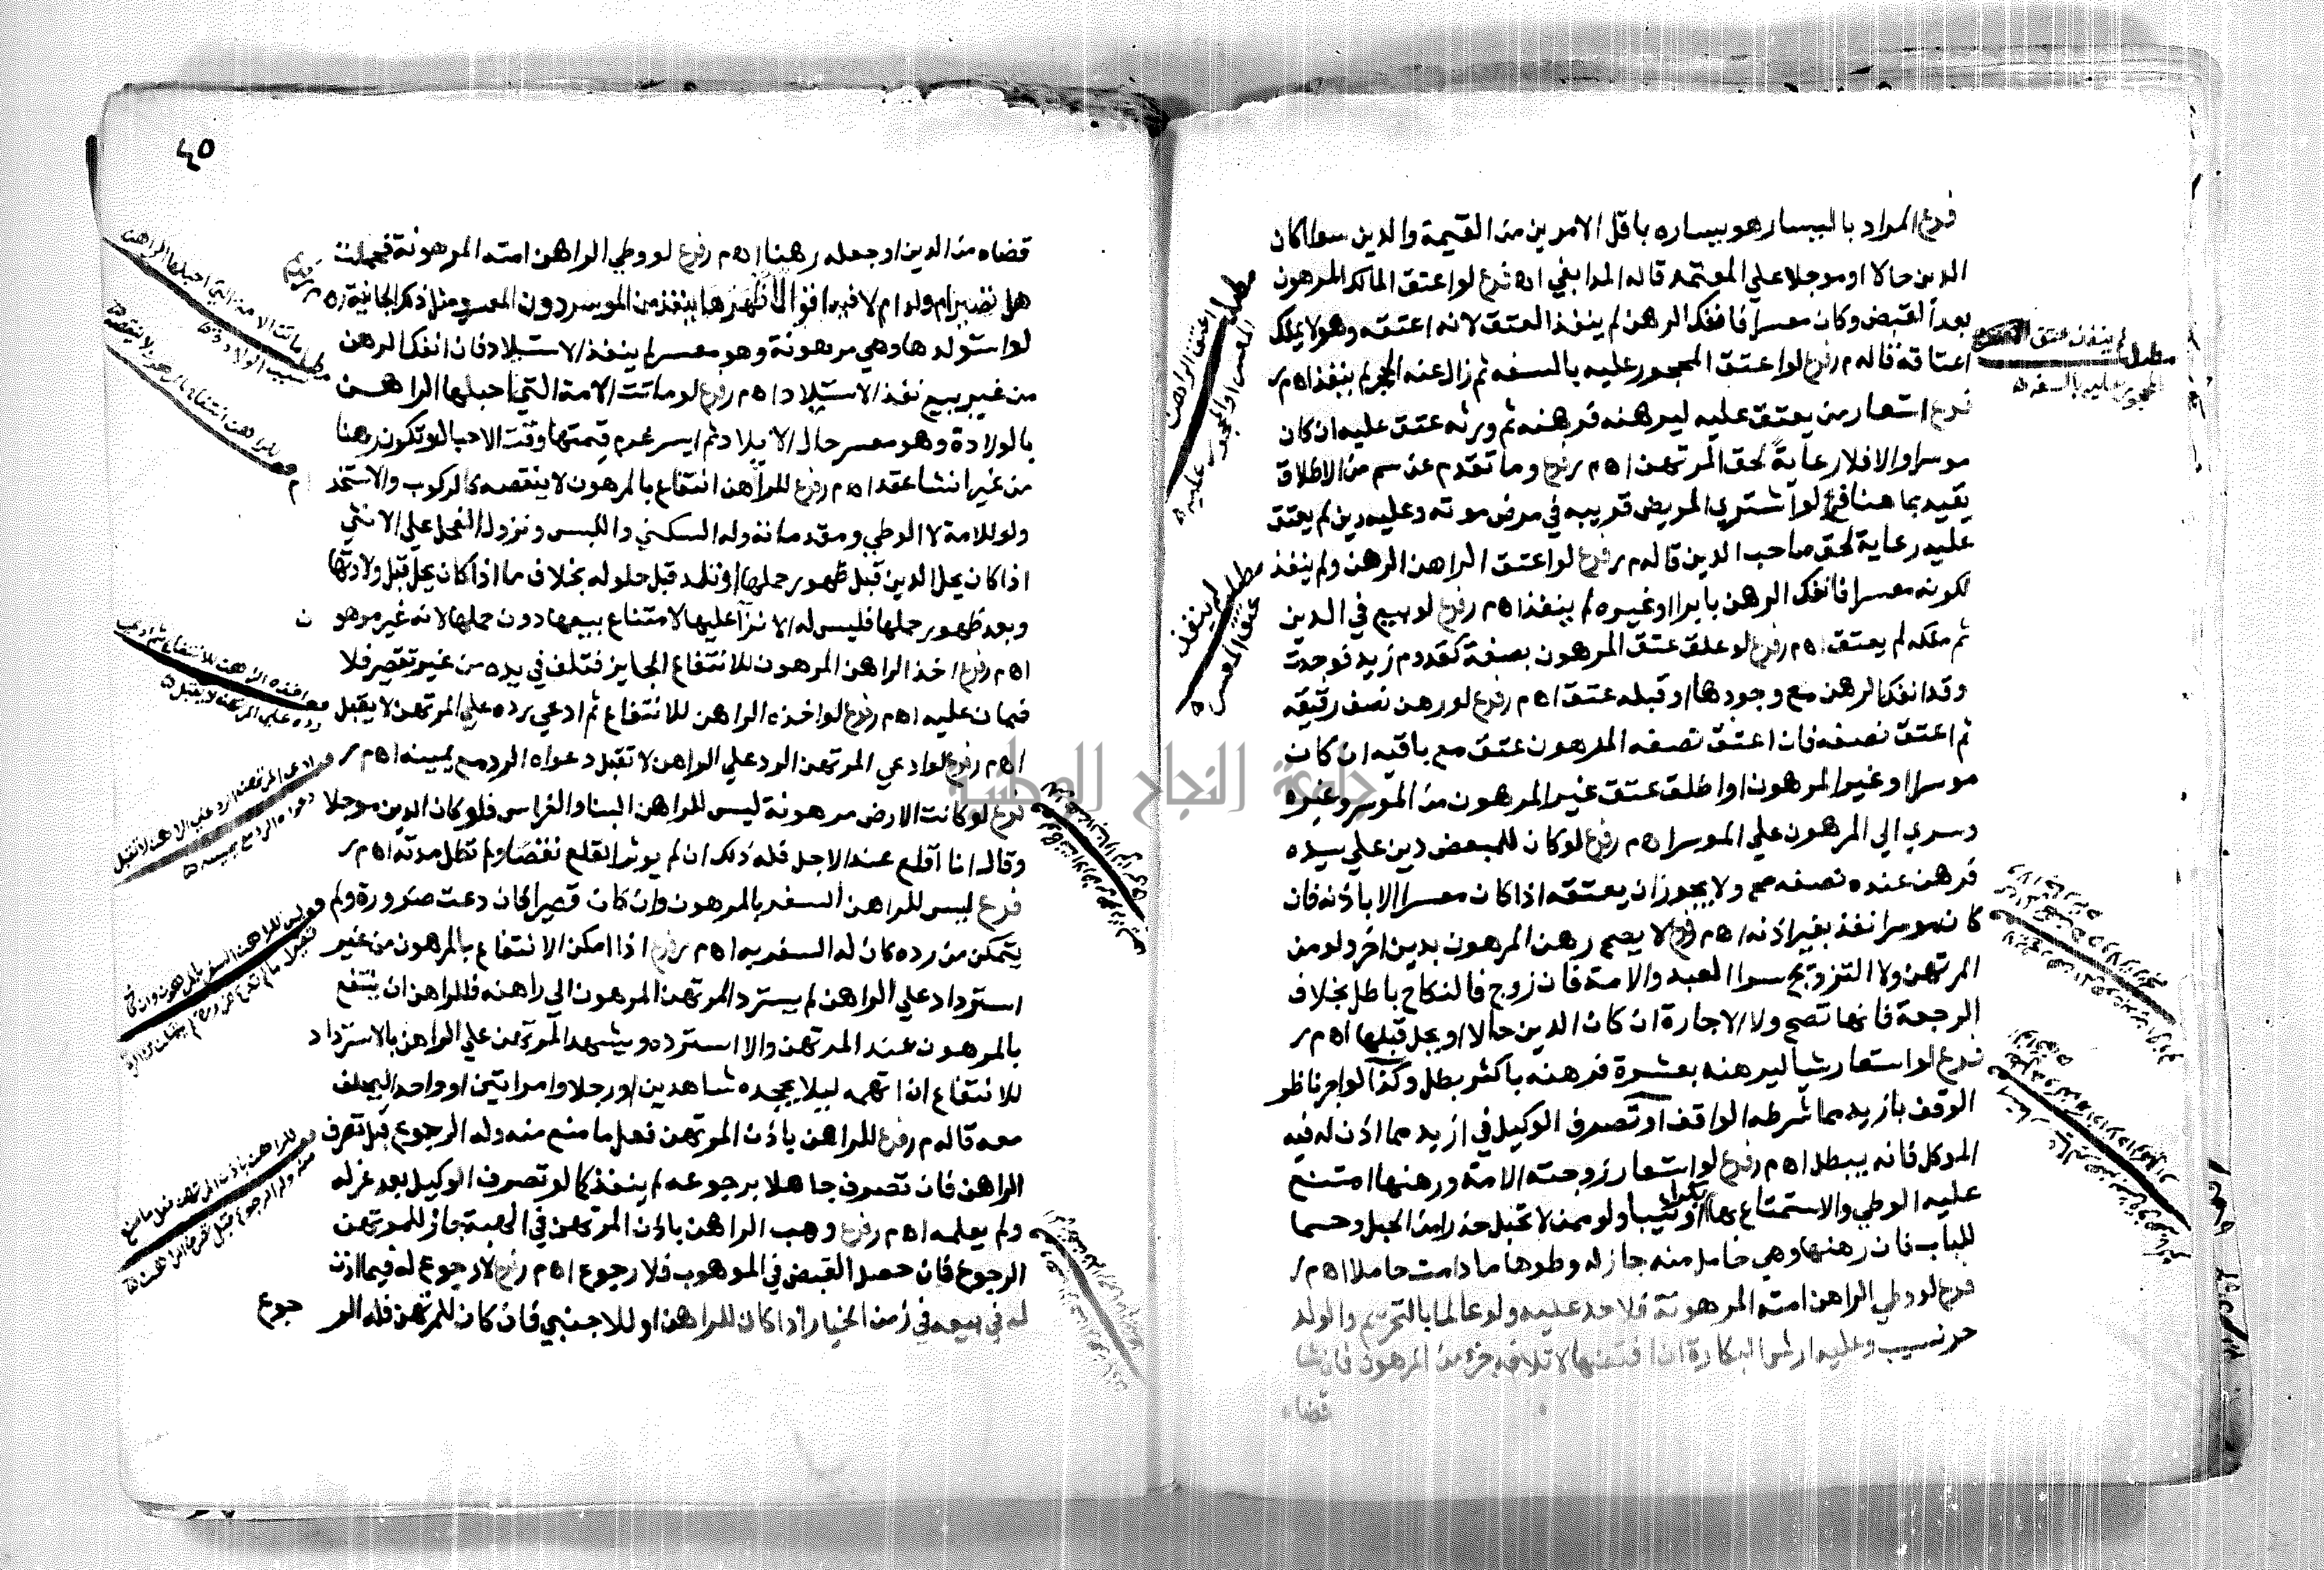 فرع المراد باليسار هو يساره باقل الامرين من القيمة والدين سوا كان
الدين حالا او موجلا علي المعتمد قاله المدابغي اه فرع لو اعتق المالك المرهون
بعد القبض وكان معسرا فانفك الرهن لم ينفذ العتق لانه اعتقه وهو لا يملك
اعتاقه قاله م ر فرع لو اعتق المحجور عليه بالسفه ثم زال عنه الحجر لم ينفذ اه م ر
فرع استعار من يعتق عليه ليرهنه فرهنه ثم ورثه عتق عليه ان كان
موسرا والا فلا رعاية لحق المرتهن اه م ر فرع وما تقدم عن سم من الاطلاق
يقيد بما هنا فرع لو اشتري المريض قريبه في مرض موته وعليه دين لم يعتق
عليه رعاية لحق صاحب الدين قاله م ر فرع لو اعتق الراهن الرهن ولم ينفذ
لكونه معسرا فانفك الرهن بابرا او غيره لم ينفذ اه م ر فرع لو بيع في الدين
ثم ملكه لم يعتق اه م ر فرع لو علق عتق المرهون بصفة كقدوم زيد فوجدت
وقد انفك الرهن مع وجودها او قبله عتق اه م ر فرع لو رهن نصف رقيقه
ثم اعتق نصفه فان اعتق نصفه المرهون عتق مع باقيه ان كان
موسرا او غير المرهون او اطلق عتق غير المرهون من الموسر وغيره
وسري الي المرهون علي الموسر اه م ر فرع لو كان للمبعض دين علي سيده
فرهن عنده نصفه صح ولا يجوز ان يعتقه اذا كان معسرا الا باذنه فان
كان موسرا نفذ بغير اذنه اه م ر فرع لا يصح رهن المرهون بدين اخر ولو من
المرتهن ولا التزويج سوا العبد والامة فان زوج فالنكاح باطل بخلاف
الرجعة فانها تصح ولا الاجارة ان كان الدين حالا او يحل قبلها اه م ر
فرع لو استعار شيا ليرهنه بعشرة فرهنه باكثر بطل وكذا لو اجر ناظر
الوقف بازيد مما شرطه الواقف او تصرف الوكيل في ازيد مما اذن له فيه
الموكل فانه يبطل اه م ر فرع لو استعار زوجته الامة ورهنها امتنع
عليه الوطي والاستمتاع بها او ثيبا ولو ممن لا تحبل حذرا من الحبل وحسما
للباب فان رهنها وهي حامل منه جاز له وطوها ما دامت حاملا اه م ر
فرع لو وطي الراهن امته المرهونة فلا حد عليه ولو عالما بالتحريم والولد
حر نسيب وعليه ارش البكارة ان افتضها لاتلافه جزء من المرهون فان شا
قضاه
مطلب لم ينفذ عتق
المحجور عليه بالسفه
مطلب اعتق الراهن
المعسر او المحجور عليه
مطلب لم ينفذ
عتق المعسر
٤٥
قضاه من الدين او جعله رهنا اه م ر فرع لو وطي الراهن امته المرهونة فحملت
هل تصير ام ولد ام لا فيه اقوال اظهرها ينفذ من الموسر دون المعسر
لو استولدها وهي مرهونة وهو معسر لم ينفذ الاستيلاد فان انفك الرهن
من غير بيع نفذ الاستيلاد اه م ر فرع لو ماتت الامة التي احبلها الراهن
بالولادة وهو معسر حال الايلاد ثم ايسر غرم قيمتها وقت الاحبال وتكون رهنا
من غير انشا عقد اه م ر فرع للراهن انتفاع بالمرهون لا ينقصه كالركوب والاستخد
ولو للامة لا الوطي ومقدماته وله السكني واللبس ونزول الفحل علي الانثي
اذا كان يحل الدين قبل ظهور حملها او تلد قبل حلوله بخلاف ما اذا كان يحل قبل ولادتها
وبعد ظهور حملها فليس له الانزا عليها لامتناع بيعها دون حملها لانه غير مرهو ن
اه م ر فرع اخذ الراهن المرهون للانتفاع الجايز فتلف في يده من غير تقصير فلا
ضمان عليه اه م ر فرع لو اخذه الراهن للانتفاع ثم ادعي رده علي المرتهن لا يقبل
اه م ر فرع لو ادعي المرتهن الرد علي الراهن لا تقبل دعواه الرد مع يمينه اه م ر
فرع لو كانت الارض مرهونة ليس للراهن البنا والغراس فلو كان الدين موجلا
وقال انا اقلع عند الاجل فله ذلك ان لم يوثر القلع نقصا ولم تطل مدته اه م ر
فرع ليس للراهن السفر بالمرهون وان كان قصيرا فان دعت ضرورة ولم
يتمكن من رده كان له السفر به اه م ر فرع اذا امكن الانتفاع بالمرهون من غير
استرداد علي الراهن لم يسترد المرتهن المرهون الي راهنه فللراهن ان ينتفع
بالمرهون عند المرتهن والا استرده ويشهد المرتهن علي الراهن بالاسترداد
للانتفاع ان اتهمه ليلا يجحده شاهدين او رجلا وامراتين او واحد ليحلف
معه قاله م ر فرع للراهن باذن المرتهن فعل ما منع منه وله الرجوع قبل تصرف
الراهن فان تصرف جاهلا برجوعه لم ينفذ كما لو تصرف الوكيل بعد عزله
ولم يعلمه اه م ر فرع وهب الراهن باذن المرتهن في الهبة جاز للمرتهن
الرجوع فان حصل القبض في الموهوب فلا رجوع اه م ر فرع لا رجوع له فيما اذن
له في بيعه في زمن الخيار اذا كان للراهن او للاجنبي فان كان للمرتهن فله الر
جوع
مطلب ماتت الامة التي احبلها الراهن
بسبب الولادة
للراهن انتفاع بالمرهون لا ينقصه
اخذه الراهن للانتفاع ثم ادعي
رده علي المرتهن لا يقبل
ادعي المرتهن الرد علي الراهن لا تقبل
دعواه الرد مع يمينه
ليس للراهن السفر بالمرهون وان كان
للراهن باذن المرتهن فعل ما منع
منه وله الرجوع قبل تصرف الراهن
جامعة النجاح الوطنية